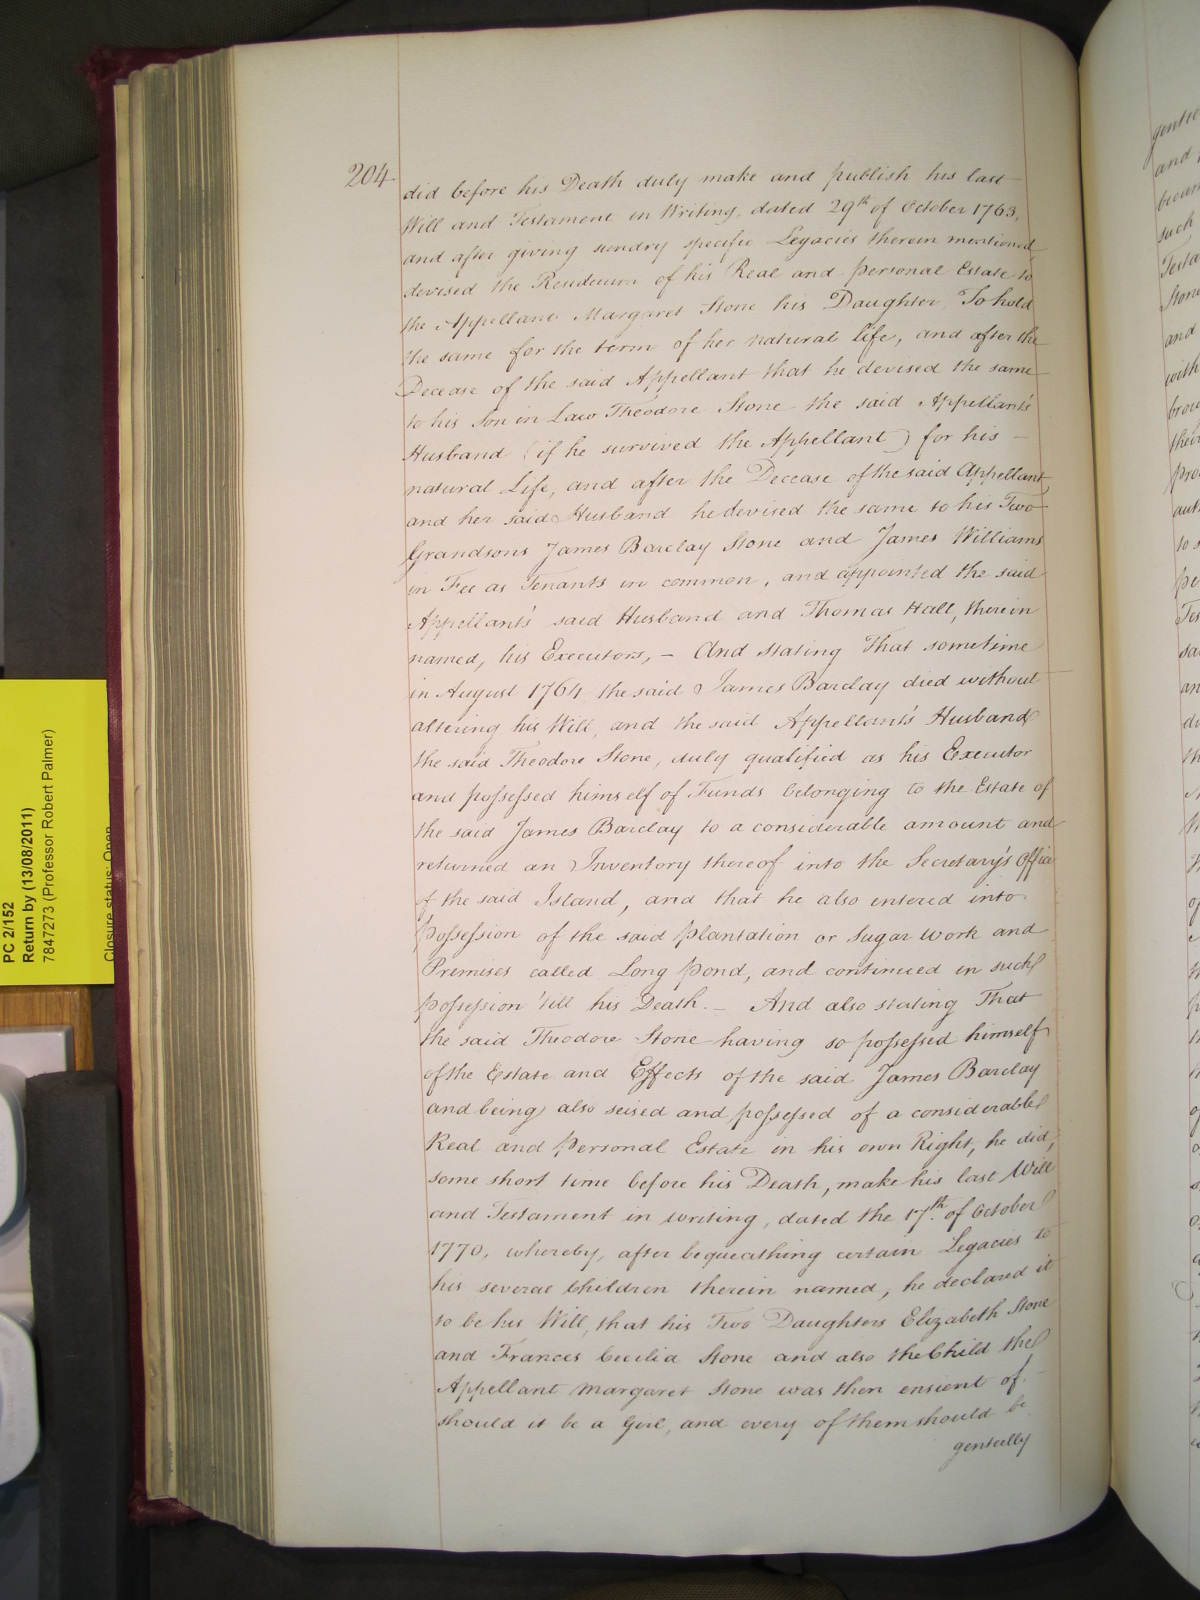 204
did before his Death duly make and publish his last
Will and Testament in Writing, dated 29th of October 1763,
and after giving sundry specific Legacies therein mentioned
devised the Residuum of his Real and personal Estate to
the Appellant Margaret Stone his Daughter, To hold
the same for the term of her natural life, and after the
Decease of the said Appellant that he devised the same
to his Son in Law Theodore Stone the said Appellant's
Husband (if he survived the Appellant) for his –
natural Life, and after the Decease of the said Appellant,
and her said Husband he devised the same to his Two
Grandsons James Barclay Stone and James Williams
in Fee as Tenants in common, and appointed the said
Appellant's said Husband and Thomas Hall, therein
named, his Executors, – And stating That sometime
in August 1764 the said James Barclay died without
altering his Will, and the said Appellant's Husband
the said Theodore Stone, duly qualified as his Executor
and possessed himself of Funds belonging to the Estate of
the said James Barclay to a considerable amount and
returned an Inventory thereof into the Secretary's Office
of the said Island, and that he also entered into
Possession of the said plantation or Sugar Work and
Premises called Long pond, and continued in such
possession 'till his Death. – And also stating That
the said Theodore Stone having so possessed himself
of the Estate and Effects of the said James Barclay
and being also seised and possessed of a considerable
Real and Personal Estate in his own Right, he did,
some short time before his Death, make his last Will
and Testament in writing, dated the 17th of October
1770, whereby, after bequeathing certain Legacies to
his several Children therein named, he declared it
to be his Will, that his Two Daughters Elizabeth Stone
and Frances Cecilia Stone and also the Child the
Appellant Margaret Stone was then ensient of
should it be a Girl, and every of them should be
genteelly
PC 2/152
Return by (13/08/2011)
7847273 (Professor Robert Palmer)
Closure status: Open